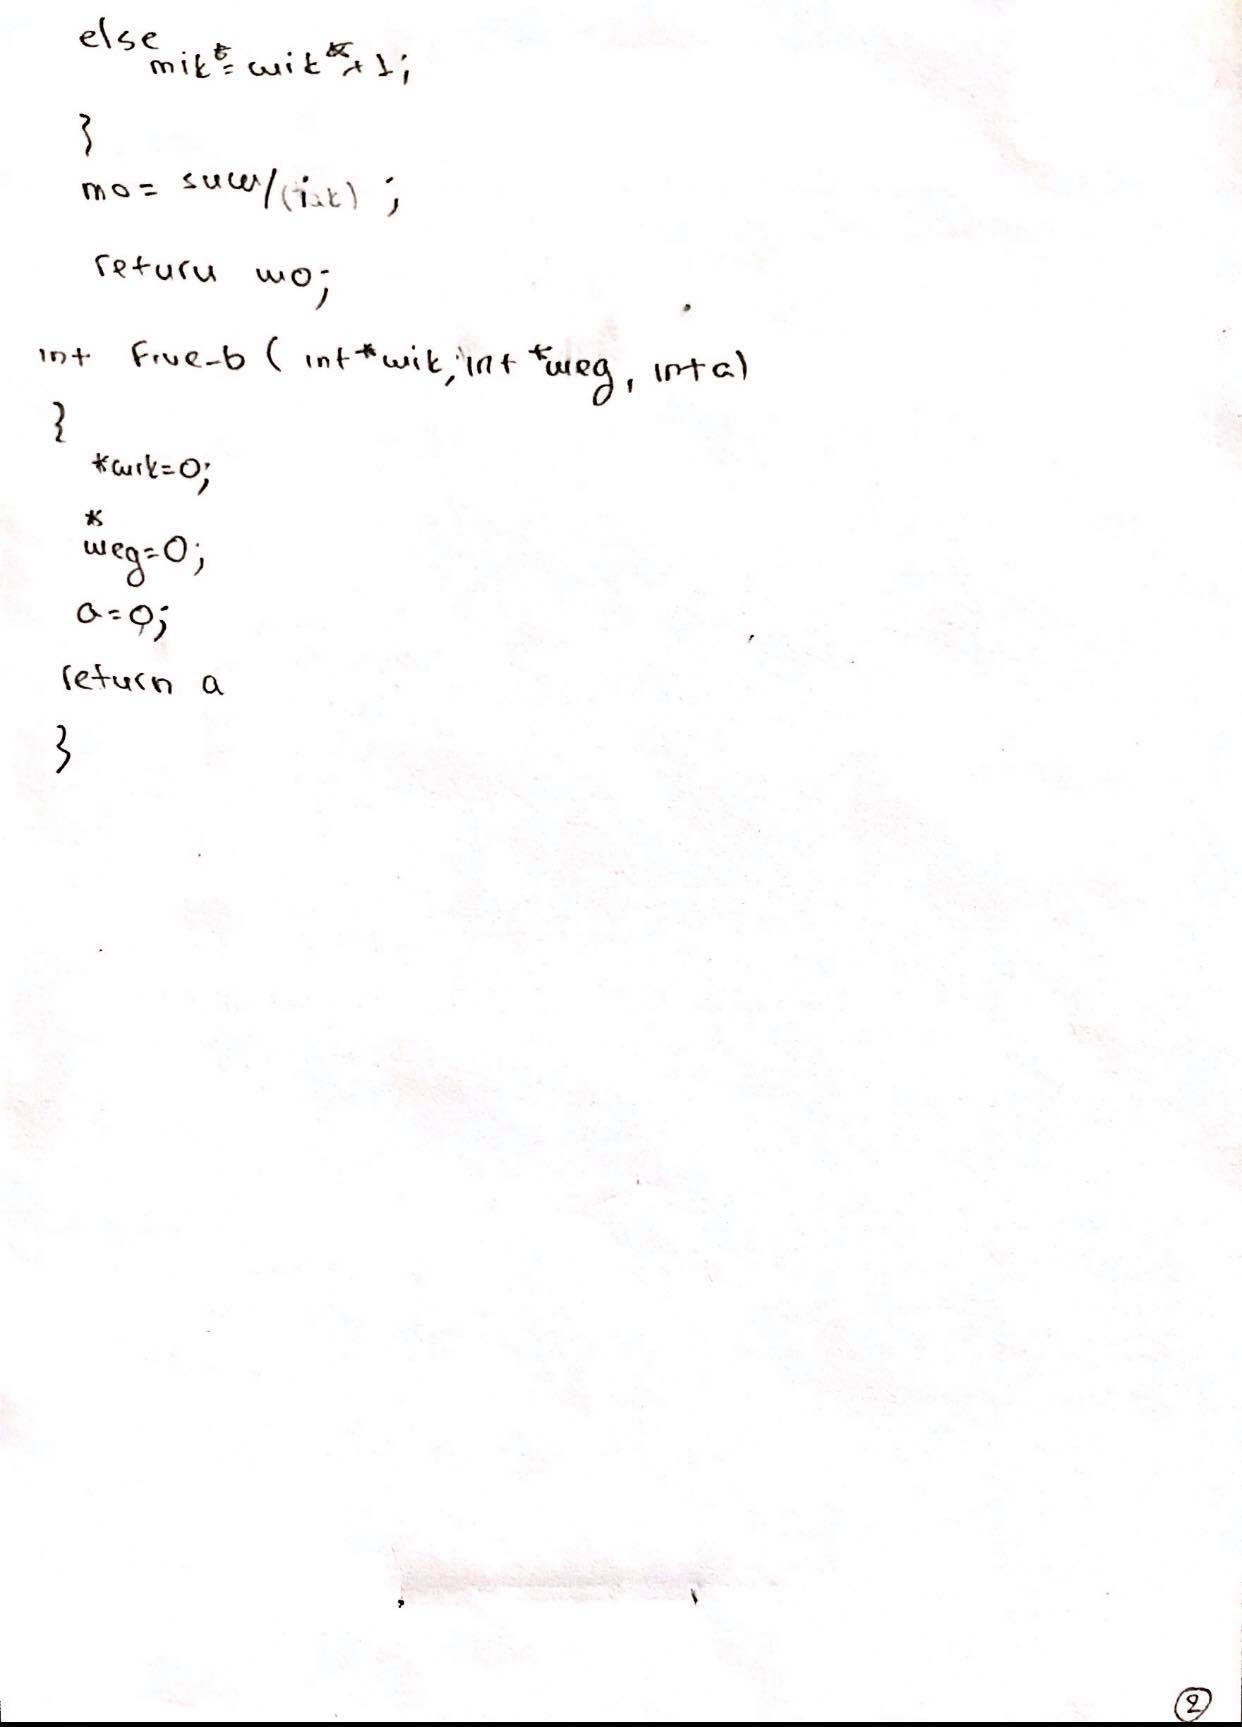 else
mik*= mik*+1;
}
mo= sum/(int) ;
return mo;
int five_b ( int*mik, int *meg, int a)
{
*mik=0;
*
meg=0;
a=0;
return a
}
2